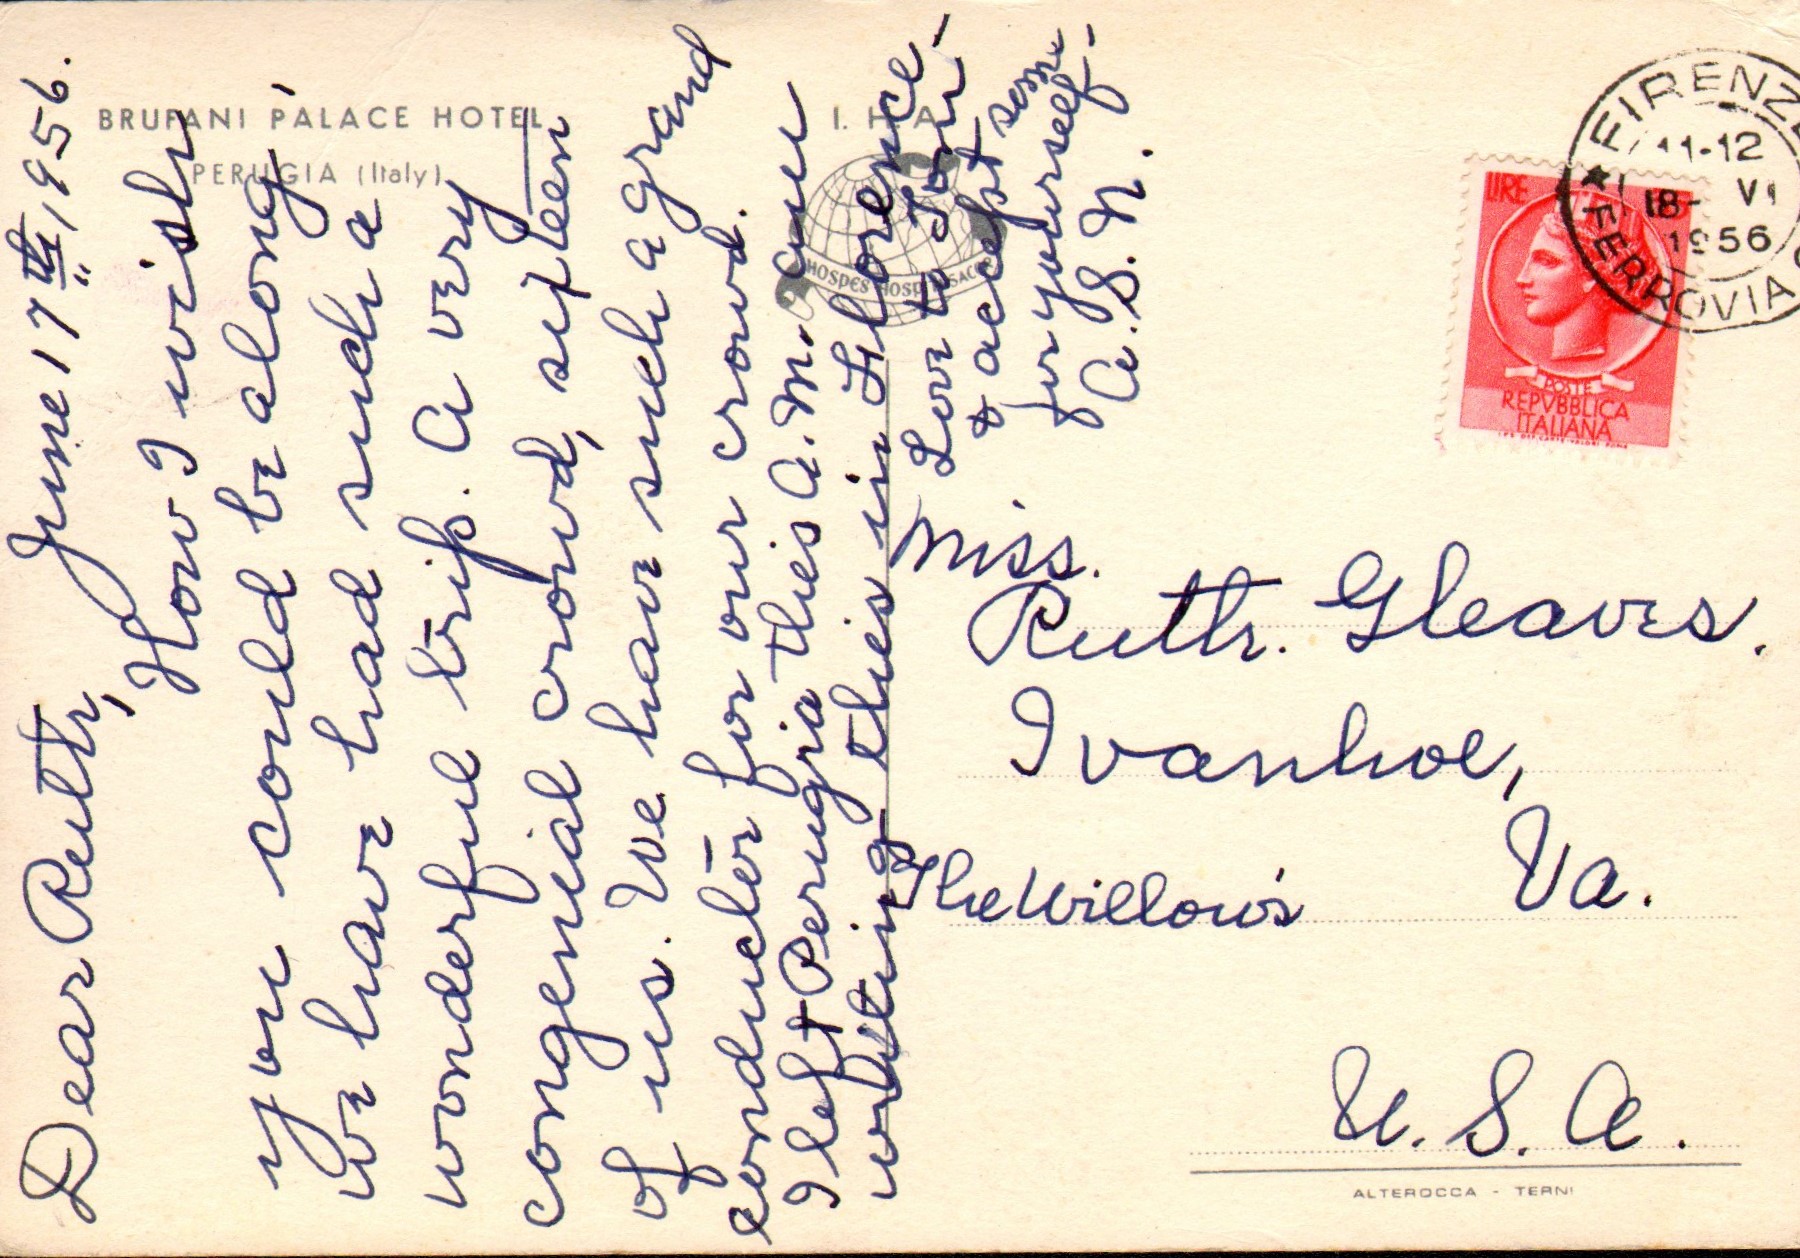 BRUFANI PALACE HOTEL
PERUGIA (Italy)
I. H. A.
HOSPES HOSPITI SACER
June 17th, 1956.
Dear Ruth,
How I wish
you could be along,
we have had such a
wonderful trip. A very
congenial crowd, sixteen
of us. We have such a grand
conductor for our crowd.
I left Perugia this A.M. am
writing this in Florence
Love to Tom -
& accept some
for yourself -
A. S. N.
Miss.
Ruth. Gleaves.
Ivanhoe,
The Willows Va.
U. S. A.
ALTEROCCA - TERNI
FIRENZE
11-12
18- VI
1956
FERROVIA
LIRE
POSTE
REPVBBLICA
ITALIANA